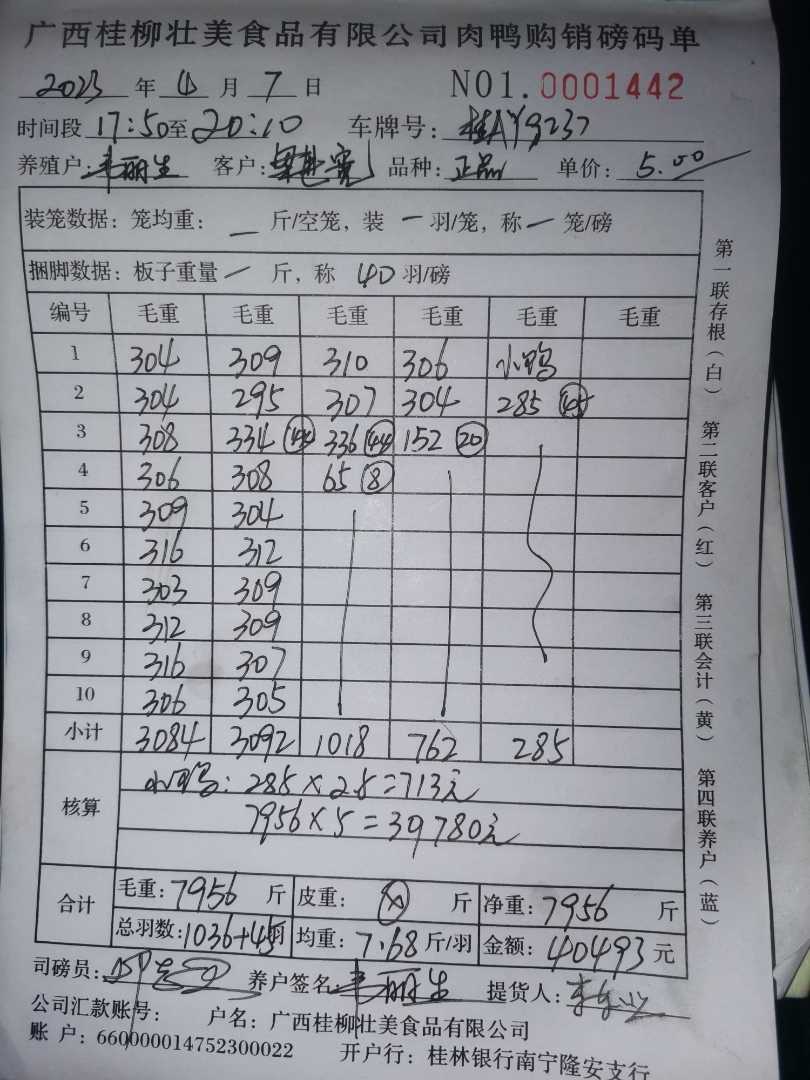 广西桂柳壮美食品有限公司肉鸭购销磅码单
2023 年 4 月 7 日 NO1.0001442
时间段 17:50至20:10 车牌号: 桂AY9237
养殖户: 韦丽生 客户: 品种: 正品 单价: 5.00
装笼数据: 笼均重: — 斤/空笼, 装 一 羽/笼, 称 一 笼/磅
捆脚数据: 板子重量 一 斤, 称 40 羽/磅
编号 毛重 毛重 毛重 毛重 毛重 毛重
1 304 309 310 306 小鸭
2 304 295 307 304 285 45
3 308 334 44 336 44 152 20
4 306 308 65 8
5 309 304
6 316 312
7 303 309
8 312 309
9 316 307
10 306 305
小计 3084 3092 1018 762 285
核算 小鸭: 285×2.5=713元
7956×5=39780元
合计 毛重: 7956 斤 皮重: 斤 净重: 7956 斤
总羽数: 1036+45羽 均重: 7.68 斤/羽 金额: 40493 元
司磅员: 养户签名: 韦丽生 提货人:
公司汇款账号: 户名: 广西桂柳壮美食品有限公司
账 户: 660000014752300022 开户行: 桂林银行南宁隆安支行
第一联存根(白) 第二联客户(红) 第三联会计(黄) 第四联养户(蓝)